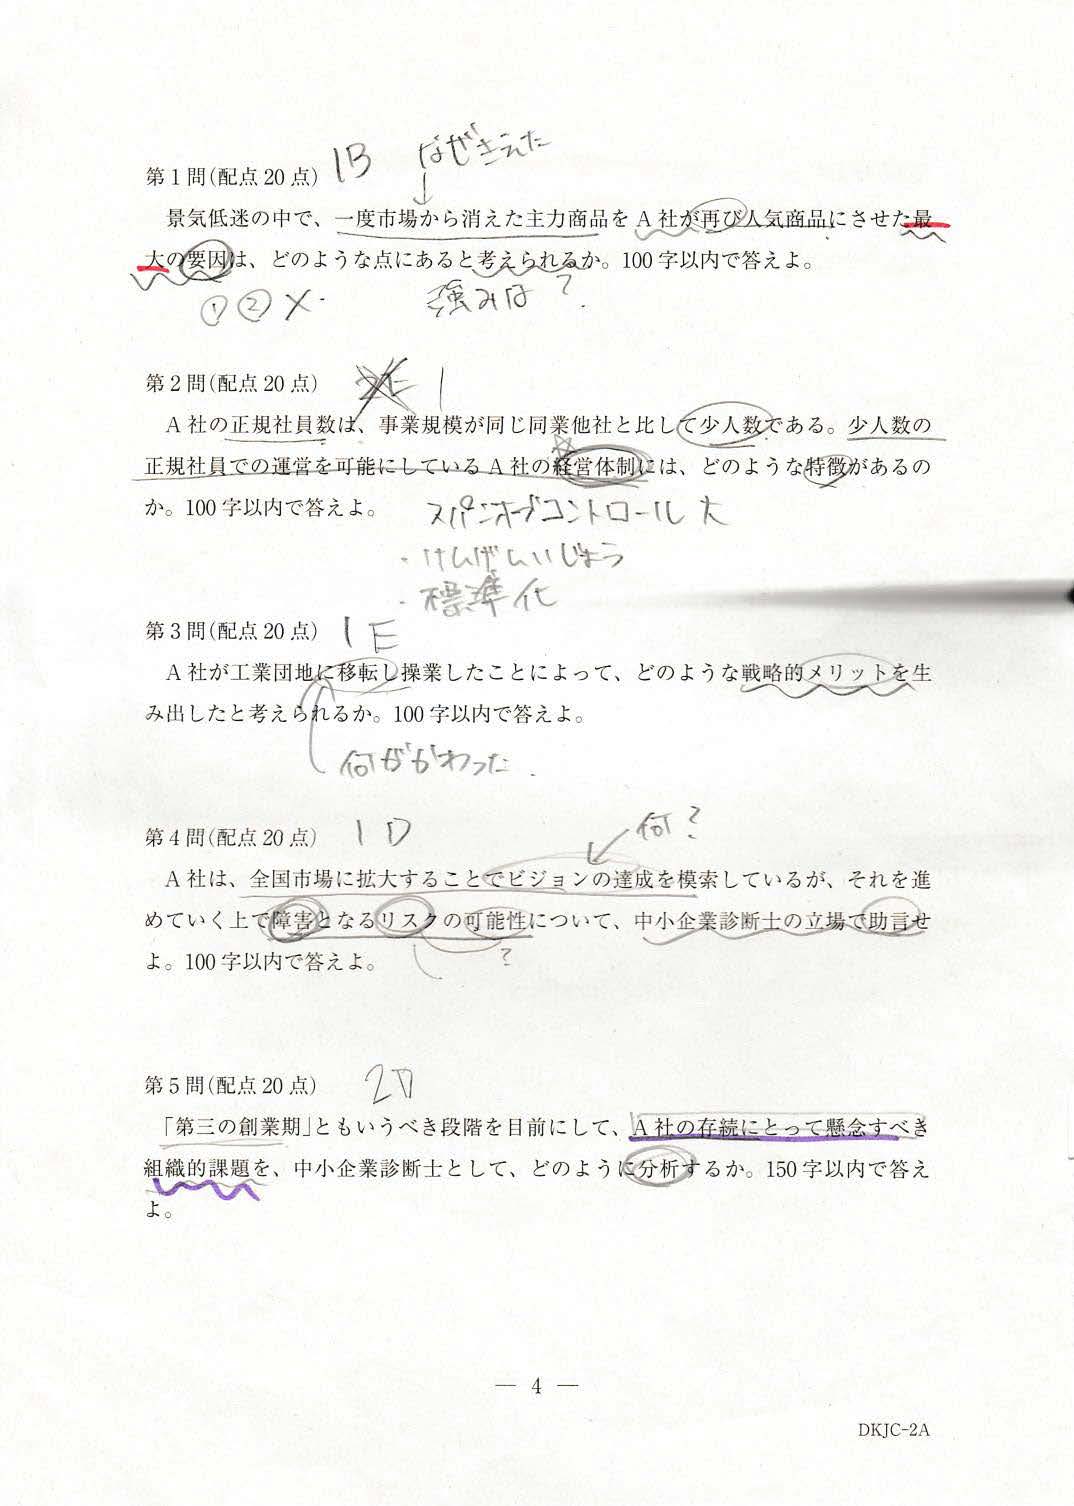 1B なぜきえた
第1問(配点20点)
景気低迷の中で、一度市場から消えた主力商品をA社が再び人気商品にさせた最
大の要因は、どのような点にあると考えられるか。100字以内で答えよ。
①②× 強みは?
第2問(配点20点) 1
A社の正規社員数は、事業規模が同じ同業他社と比して少人数である。少人数の
正規社員での運営を可能にしているA社の経営体制には、どのような特徴があるの
か。100字以内で答えよ。
スパンオブコントロール大
・けんげんいじょう
・標準化
第3問(配点20点) 1E
A社が工業団地に移転し操業したことによって、どのような戦略的メリットを生
み出したと考えられるか。100字以内で答えよ。
何がかわった
第4問(配点20点) 1D
何?
A社は、全国市場に拡大することでビジョンの達成を模索しているが、それを進
めていく上で障害となるリスクの可能性について、中小企業診断士の立場で助言せ
よ。100字以内で答えよ。
?
第5問(配点20点) 2D
「第三の創業期」ともいうべき段階を目前にして、A社の存続にとって懸念すべき
組織的課題を、中小企業診断士として、どのように分析するか。150字以内で答え
よ。
— 4 —
DKJC-2A